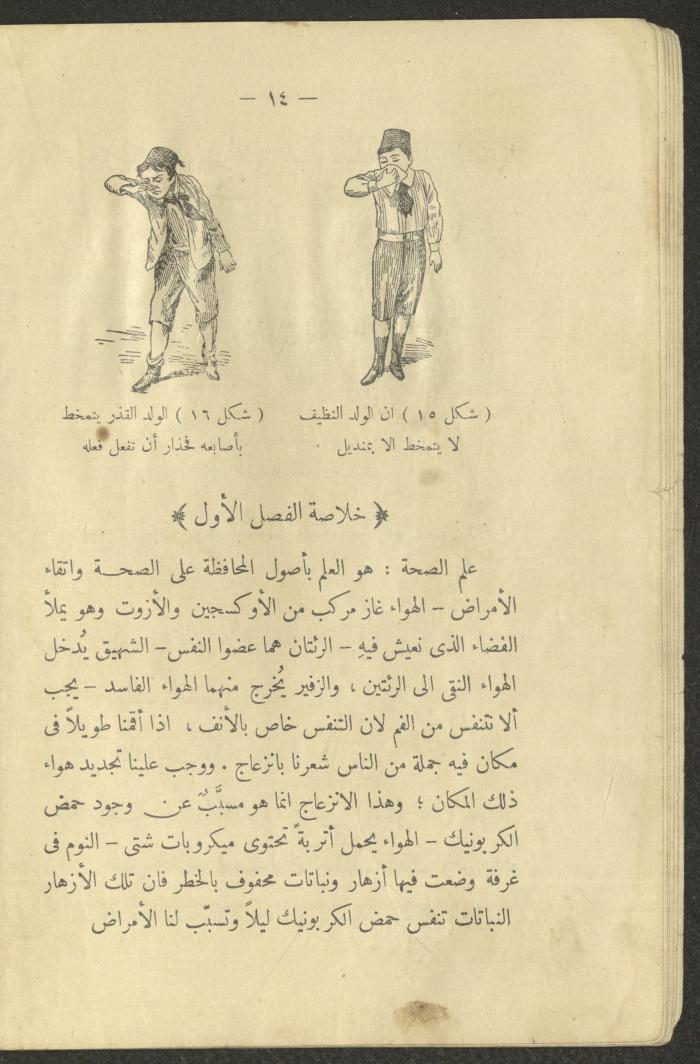 — ١٤ —
( شكل ١٥ ) ان الولد النظيف
لا يتمخط الا بمنديل
( شكل ١٦ ) الولد القذر يتمخط
بأصابعه فحذار أن تفعل فعله
﴿ خلاصة الفصل الأول ﴾
علم الصحة : هو العلم بأصول المحافظة على الصحة واتقاء
الأمراض – الهواء غاز مركب من الأوكسجين والأزوت وهو يملأ
الفضاء الذى نعيش فيهِ – الرئتان هما عضوا النفس – الشهيق يُدخل
الهواء النقى الى الرئتين ، والزفير يُخرج منهما الهواء الفاسد – يجب
ألا نتنفس من الفم لان التنفس خاص بالأنف ، اذا أقمنا طويلاً فى
مكان فيه جملة من الناس شعرنا بانزعاج . ووجب علينا تجديد هواء
ذلك المكان ؛ وهذا الانزعاج انما هو مسبَّبٌ عن وجود حمض
الكربونيك – الهواء يحمل أتربةً تحتوى ميكروبات شتى – النوم فى
غرفة وضعت فيها أزهار ونباتات محفوف بالخطر فان تلك الأزهار
النباتات تنفس حمض الكربونيك ليلاً وتسبّب لنا الأمراض